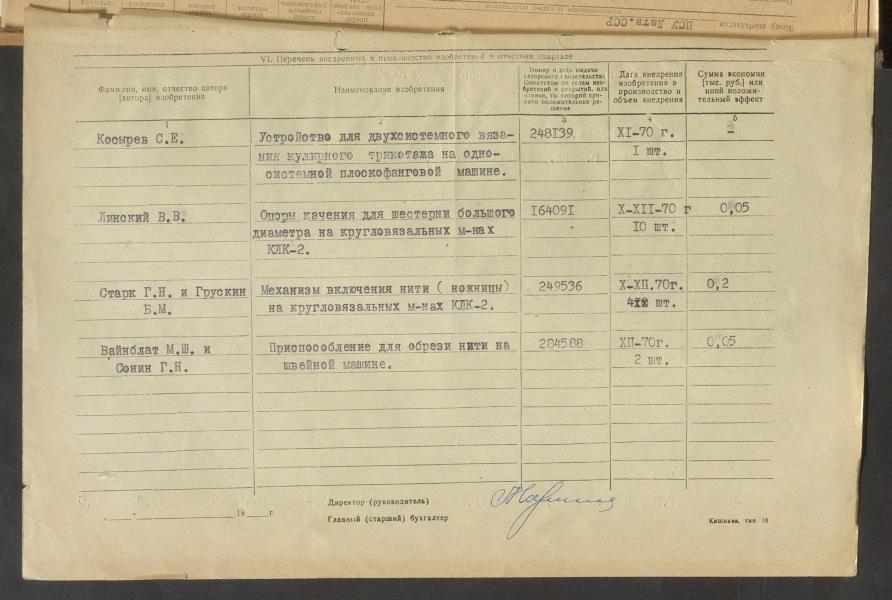 ЦСУ Латв.ССР
VI. Перечень внедренных в производство изобретений в отчетном квартале
Фамилия, имя, отчество автора
[автора] изобретения
Наименование изобретения
Номер и дата выдачи
авторского свидетельства
Комитетом по делам изо-
бретений и открытий, или
заявки, по которой при-
нято положительное ре-
шение
Дата внедрения
изобретения в
производство и
объем внедрения
Сумма экономии
[тыс. руб.] или
иной положи-
тельный эффект
1 2 3 4 5
Косырев С.Е. Устройство для двухсистемного вяза- 248139 XI-70 г. -
ния кулирного трикотажа на одно- 1 шт.
системной плоскофанговой машине.
Линский В.В. Опоры качения для шестерни большого 164091 X-XII-70 г 0,05
диаметра на кругловязальных м-нах 10 шт.
КЛК-2.
Старк Г.Н. и Грускин Механизм включения нити ( ножницы) 249536 X-XII.70г. 0,2
Б.М. на кругловязальных м-нах КЛК-2. шт.
Вайнблат М.Ш. и Приспособление для обрези нити на 284588 XII-70г. 0,05
Сонин Г.Н. швейной машине. 2 шт.
19 г.
Директор (руководитель)
Главный (старший) бухгалтер
Кишинев, тип. 16